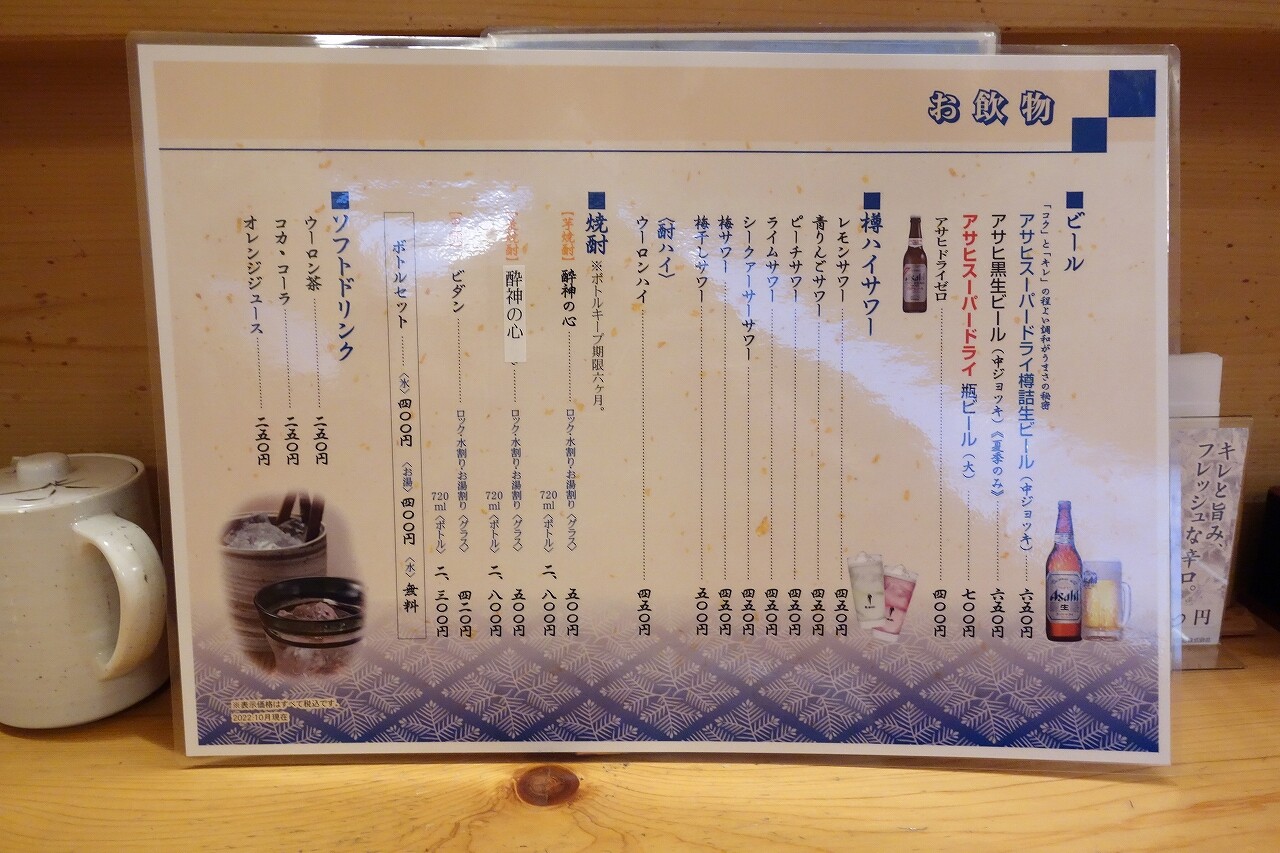 お飲物
ビール
「コク」と「キレ」の程よい調和がうまさの秘密
アサヒスーパードライ樽詰生ビール（中ジョッキ）六五〇円
アサヒ黒生ビール（中ジョッキ）《夏季のみ》六五〇円
アサヒスーパードライ 瓶ビール（大）七〇〇円
アサヒドライゼロ 四〇〇円
樽ハイサワー
レモンサワー 四五〇円
青りんごサワー 四五〇円
ピーチサワー 四五〇円
ライムサワー 四五〇円
シークァーサーサワー 四五〇円
梅サワー 四五〇円
梅干しサワー 五〇〇円
〈酎ハイ〉
ウーロンハイ 四五〇円
焼酎 ※ボトルキープ期限六ヶ月。
【芋焼酎】 酔神の心 ロック・水割り・お湯割り〈グラス〉 五〇〇円
720ml〈ボトル〉 二、八〇〇円
酔神の心 ロック・水割り・お湯割り〈グラス〉 五〇〇円
720ml〈ボトル〉 二、八〇〇円
ビダン ロック・水割り・お湯割り〈グラス〉 四二〇円
720ml〈ボトル〉 二、三〇〇円
ボトルセット 〈氷〉四〇〇円 〈お湯〉四〇〇円 〈水〉無料
ソフトドリンク
ウーロン茶 二五〇円
コカ、コーラ 二五〇円
オレンジジュース 二五〇円
※表示価格はすべて税込です。
2022.10月現在
Asahi
生
キレと旨み、
フレッシュな辛口。
円